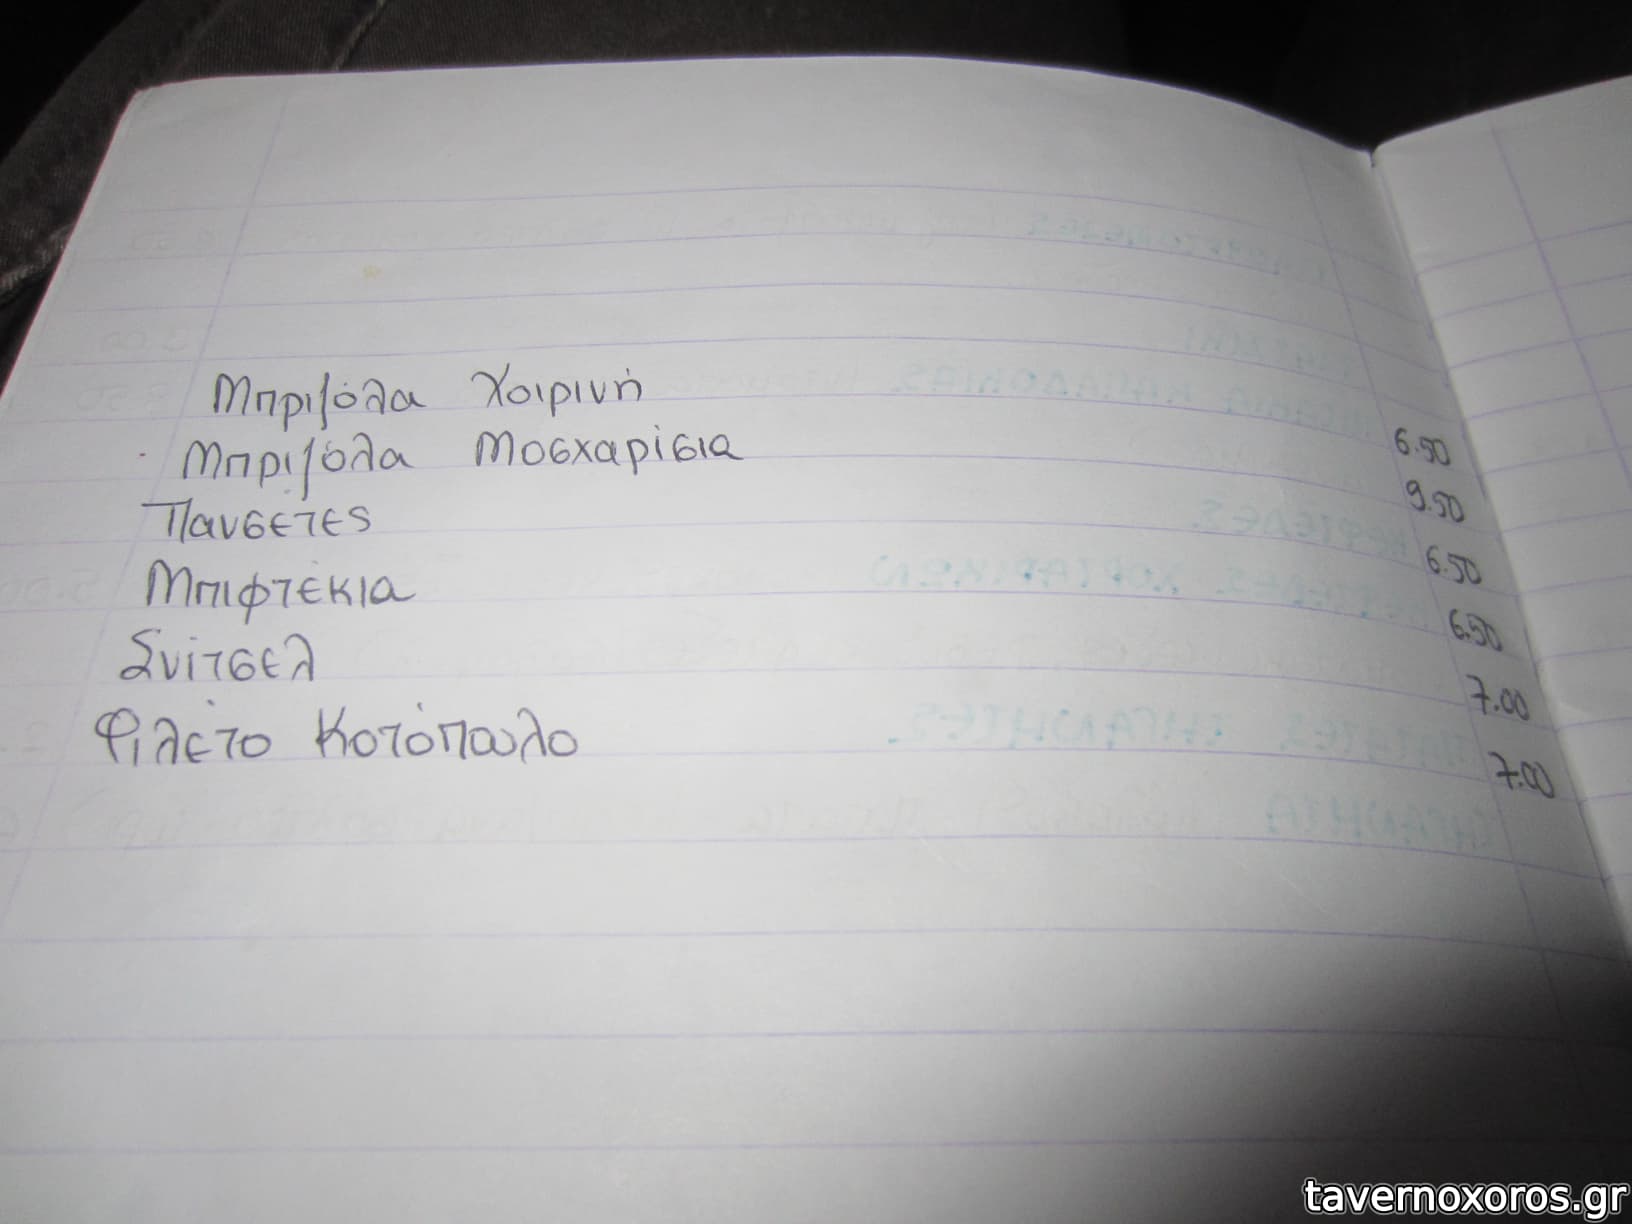 Μπριζόλα Χοιρινή 6.50
Μπριζόλα Μοσχαρίσια 9.50
Πανσετες 6.50
Μπιφτέκια 6.50
Σνίτσελ 7.00
Φιλέτο Κοτόπουλο 7.00
tavernoxoros.gr